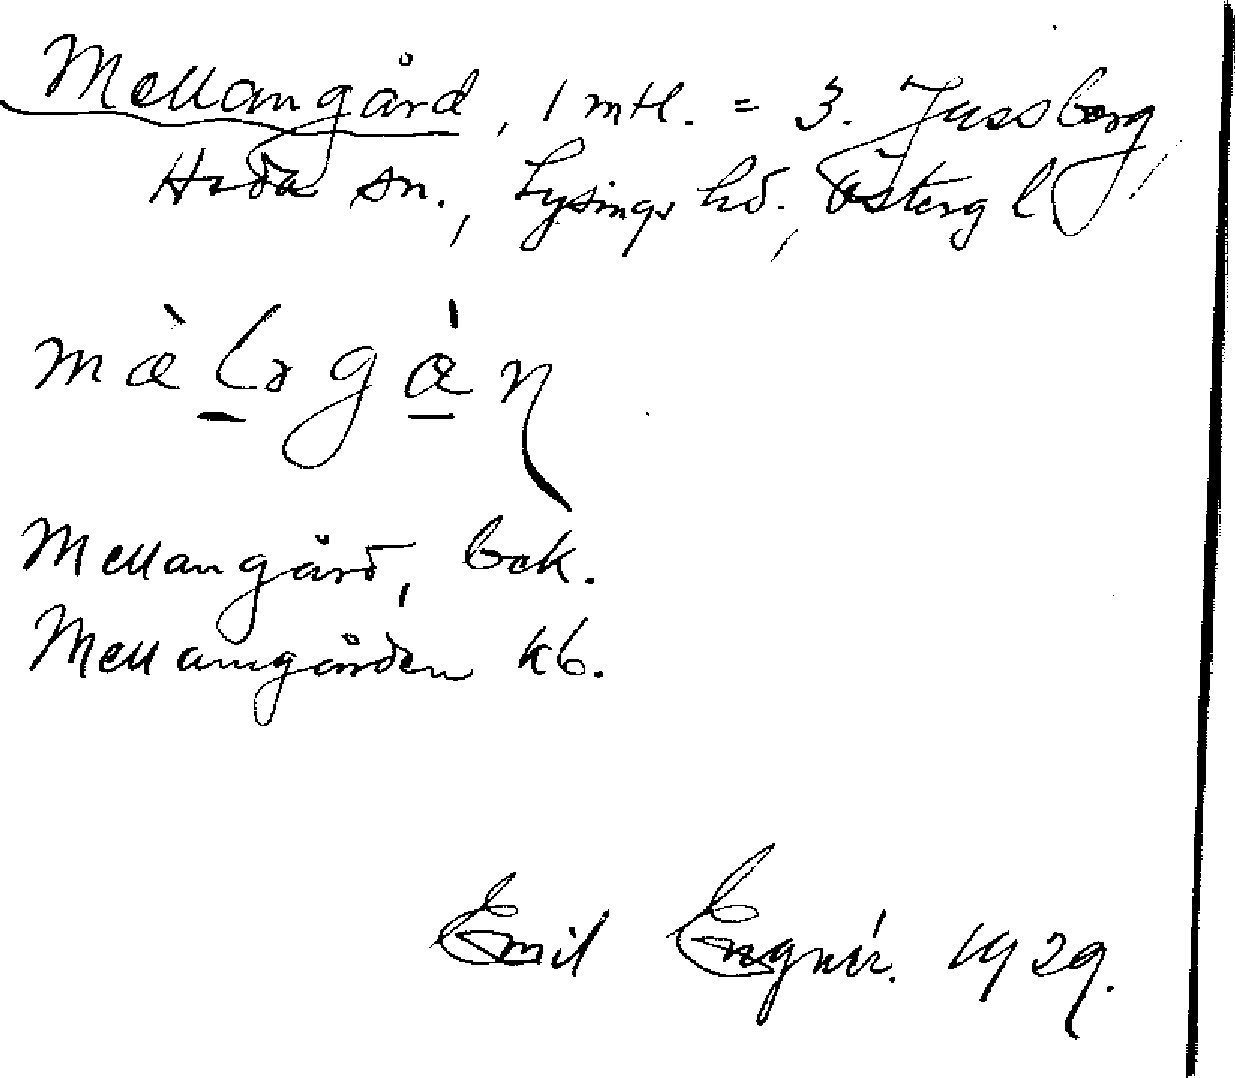 Mellangård, 1 mtl. = 3. Jussberg,
Heda sn., Lysings hd., Österg l.
Mellangård, bek.
Mellangården kb.
Emil Engnér. 1929.